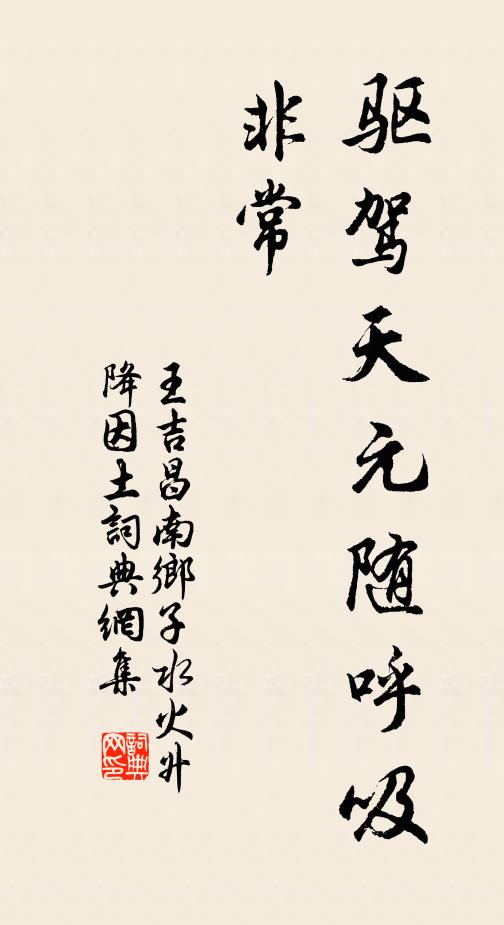 驱驾天元随呼吸
非常
王吉昌南鄉子水火升
降因土詞典網集
詞典
网印